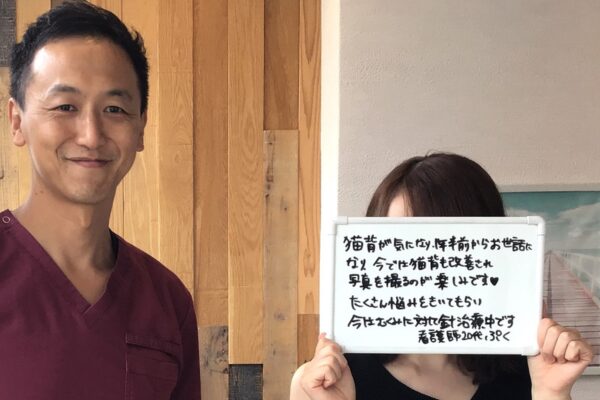 猫背が気になり、1年半前からお世話に
なり、今では猫背も改善され
写真を撮るのが楽しみです♥
たくさん悩みをきいてもらい
今はむくみに対して針治療中です
看護師20代、ぷく